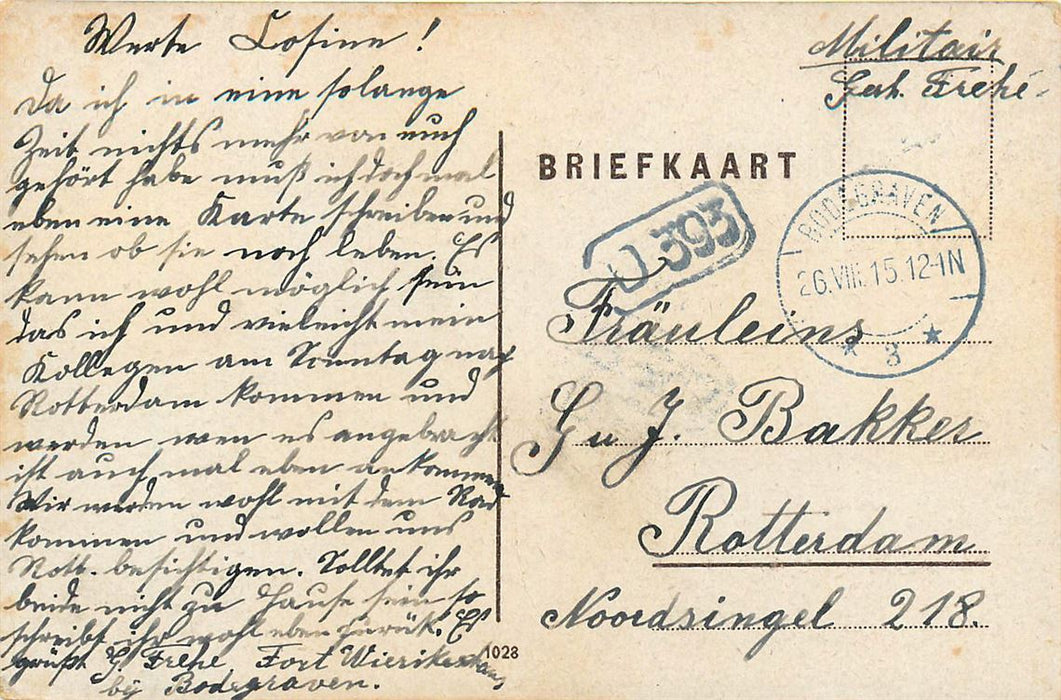 Werte Cosine!
Da ich in eine solange
Zeit nichts mehr von euch
gehört habe muß ich doch mal
eben eine Karte schreiben und
sehen ob sie noch leben. Es
kann wohl möglich sein
das ich und vieleicht mein
Kollegen am Sonntag nach
Rotterdam kommen und
werden wen es angebracht
ist auch mal eben ankommen
Wir werden wohl mit dem Rad
kommen und wollen uns
Rott. besichtigen. Solltet ihr
beide nicht zu Hause sein so
schreibt ihr wohl eben zurük. Es
grüßt G. Frehe, Fort Wierikerschans
bij Bodegraven.
Militair
Gerh. Frehé
BRIEFKAART
D 393
BODEGRAVEN
26.VIII.15.12-1N
3
Fräuleins
G u J. Bakker
Rotterdam
Noordsingel 218.
1028